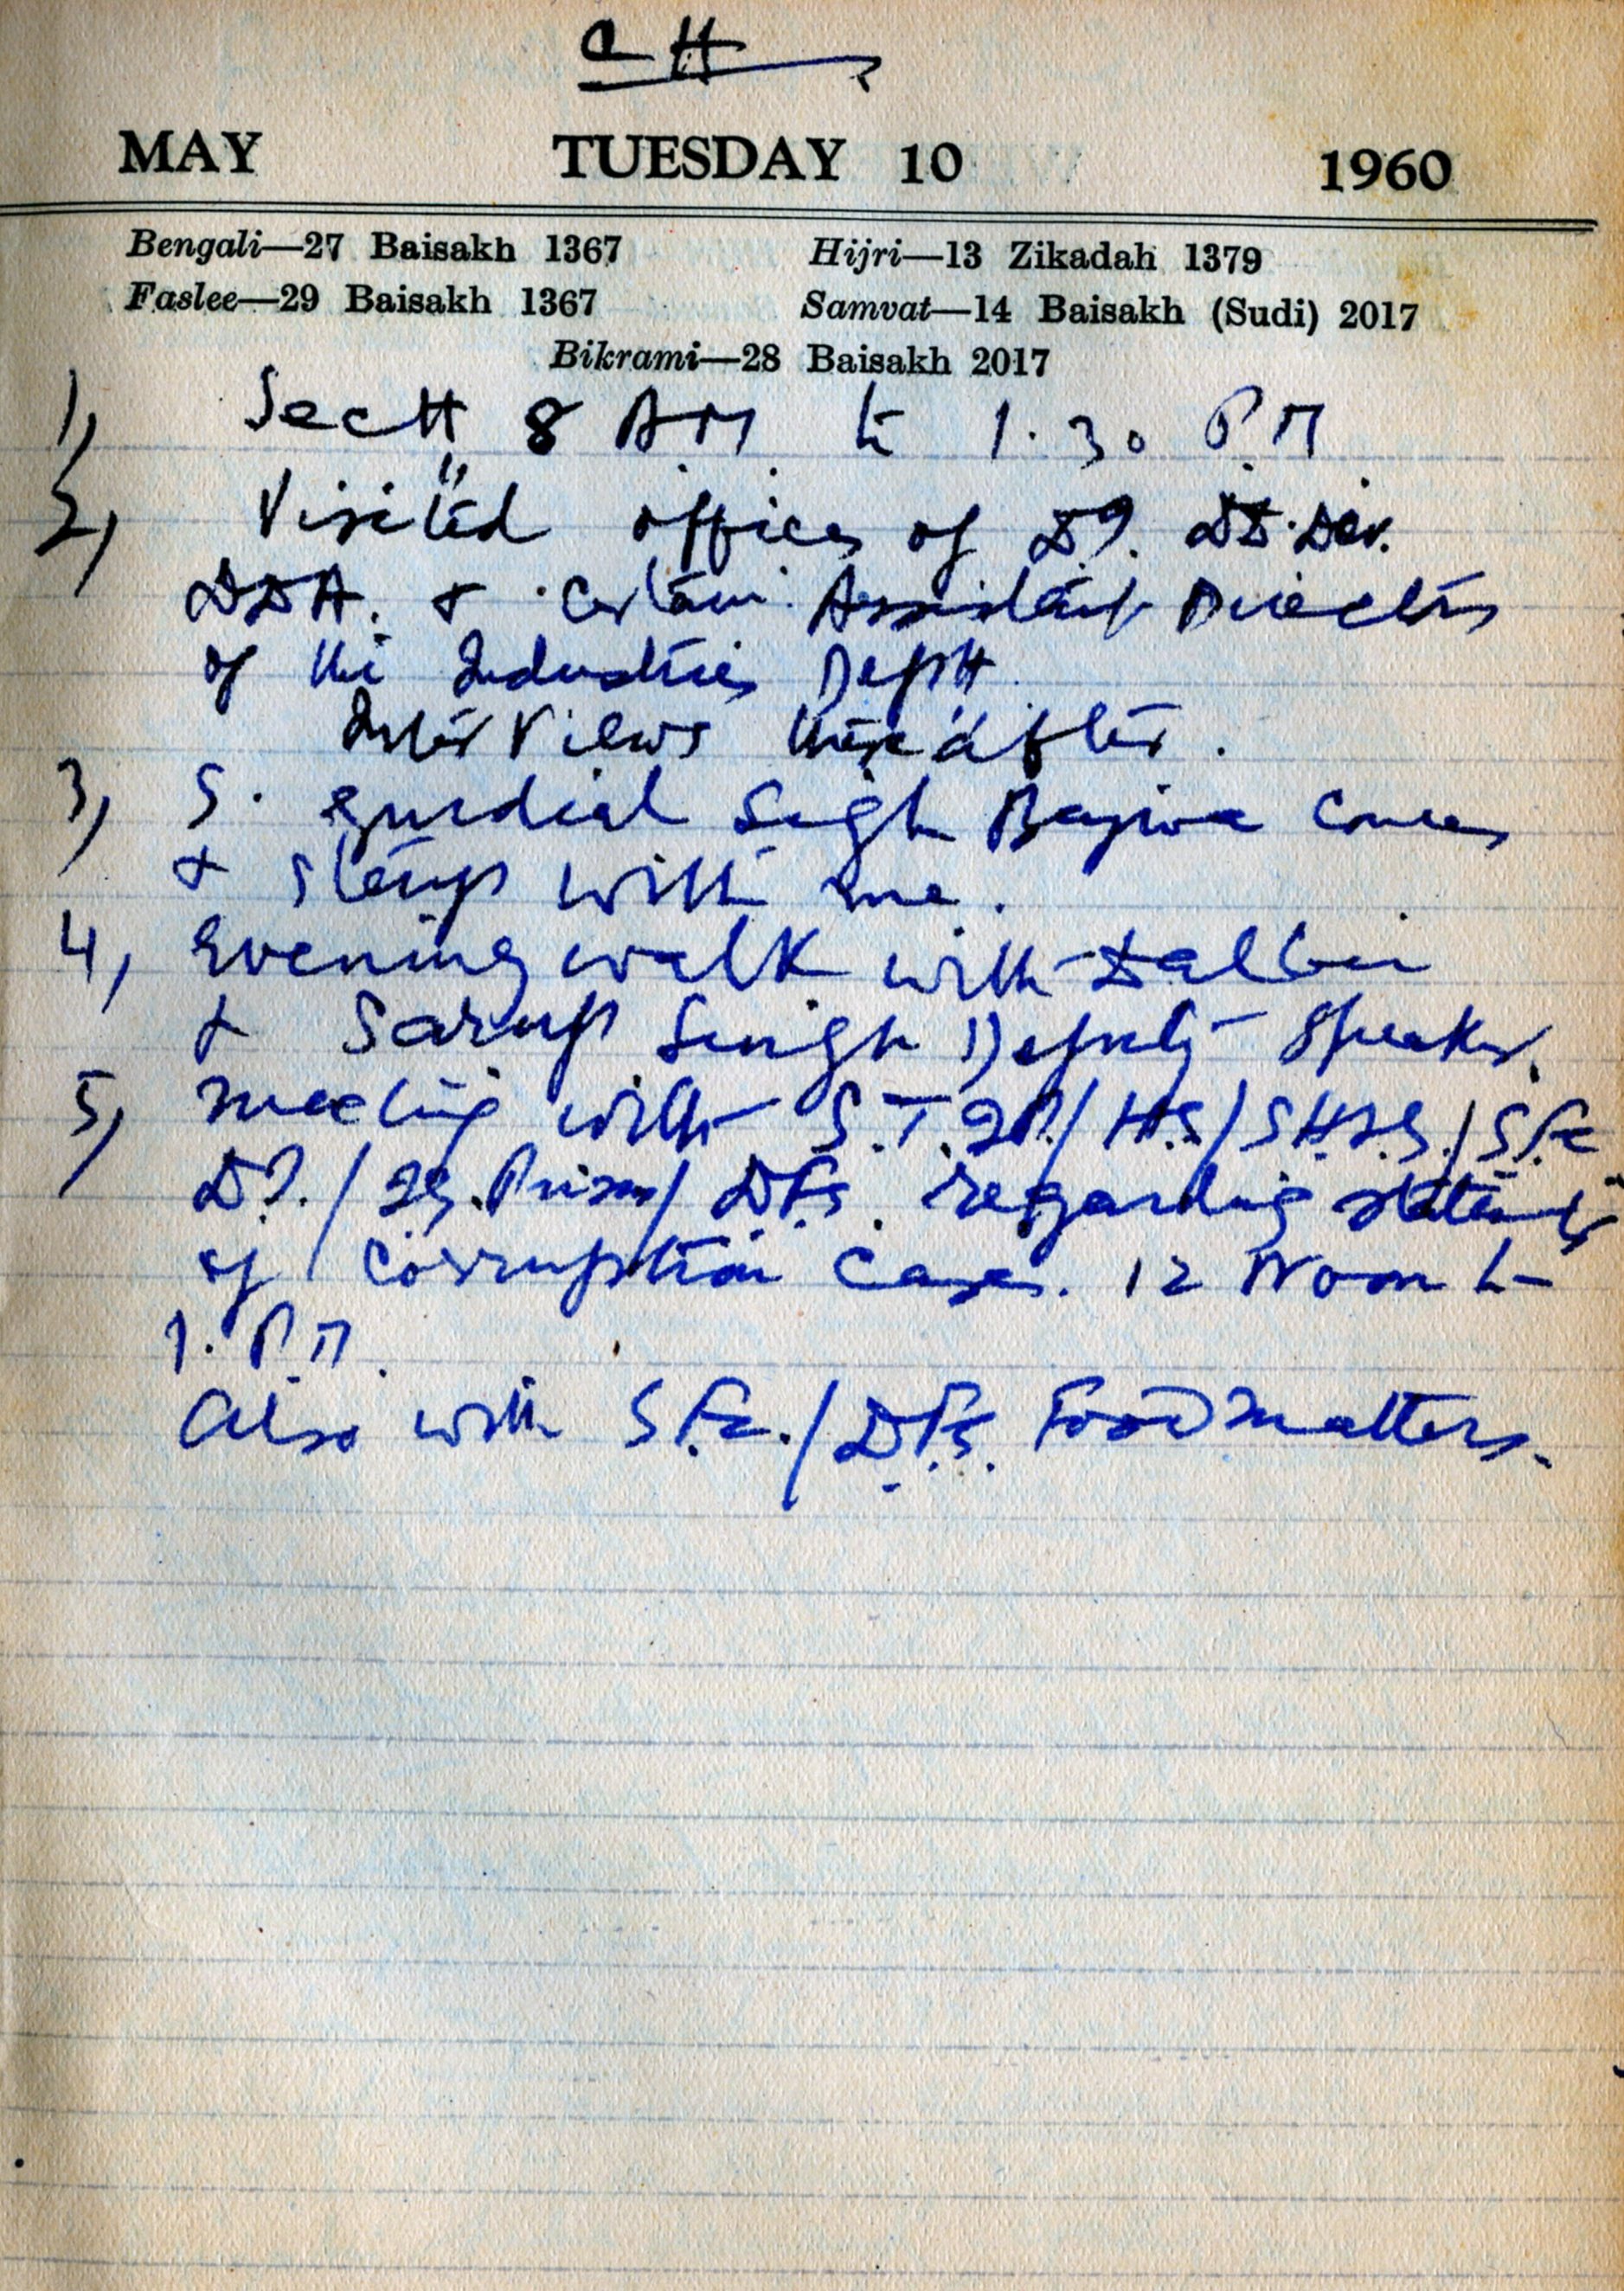 CH
MAY TUESDAY 10 1960
Bengali—27 Baisakh 1367 Hijri—13 Zikadah 1379
Faslee—29 Baisakh 1367 Samvat—14 Baisakh (Sudi) 2017
Bikrami—28 Baisakh 2017
1, Sectt 8 AM to 1.30 P.M
2, Visited offices of DI. DD.Dev.
DDA. & certain Assistant Directors
of the Industries Deptt.
Interviews thereafter.
3, S. Gurdial Singh Bajwa comes
& stays with me.
4, Evening walk with Dalbir
& Sarup Singh Deputy Speaker.
5, Meeting with H.S/
regarding
of corruption cases. 12 Noon to
1. P.M.
Also with Food matters.